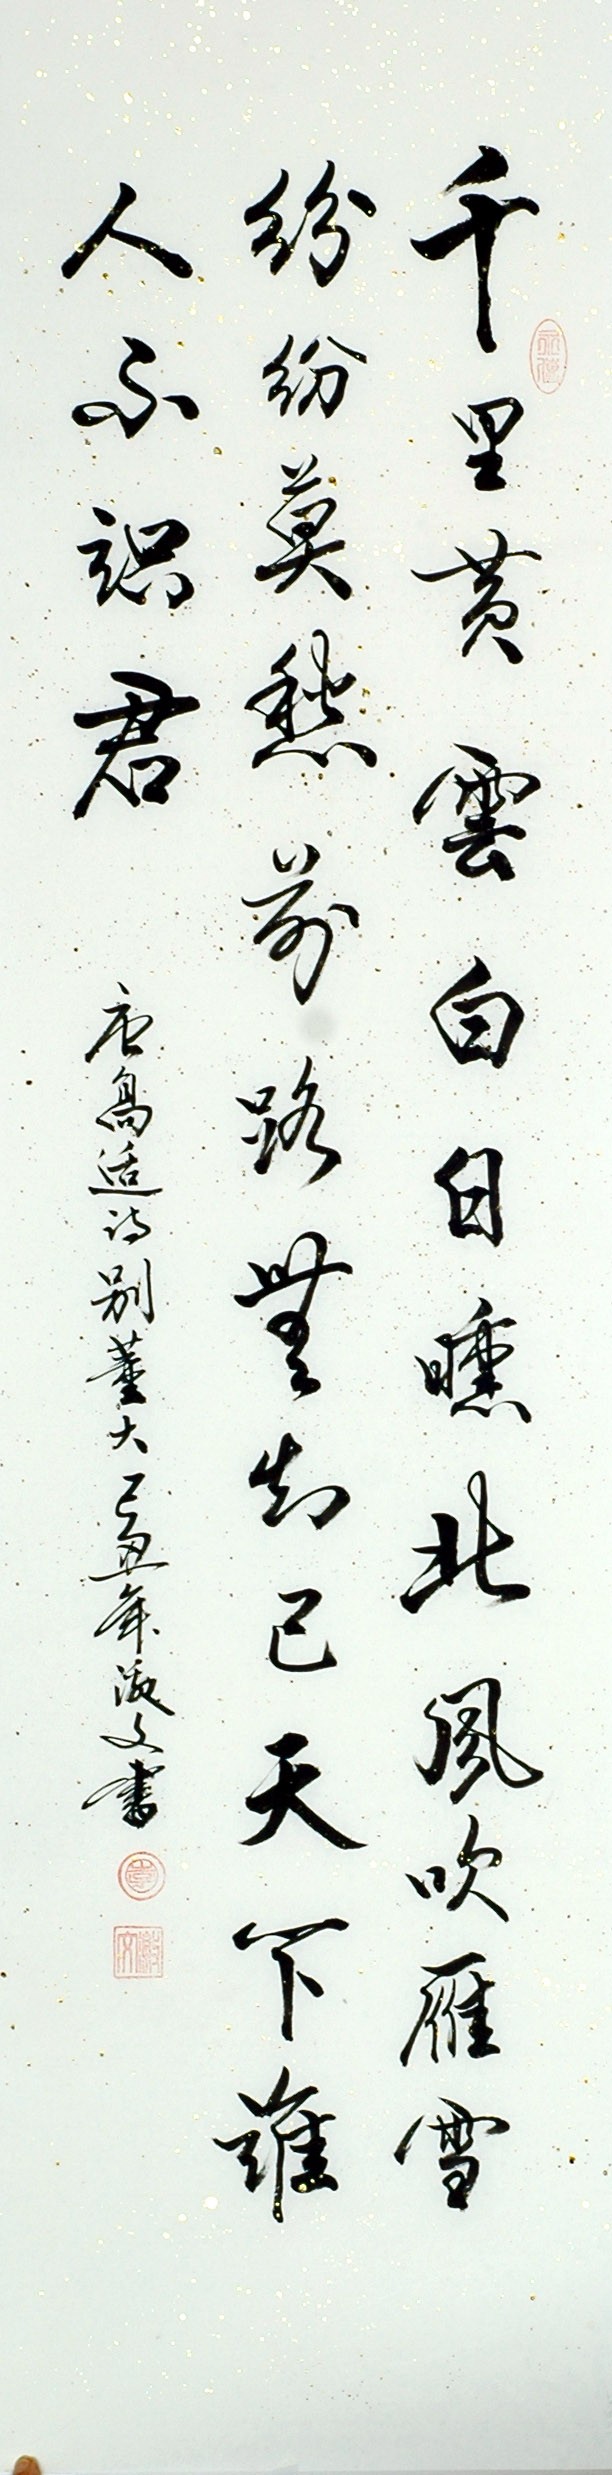 千里黄雲白日曛北風吹雁雪
紛紛莫愁前路無知己天下誰
人不識君
唐高适詩別董大己丑年淑文書